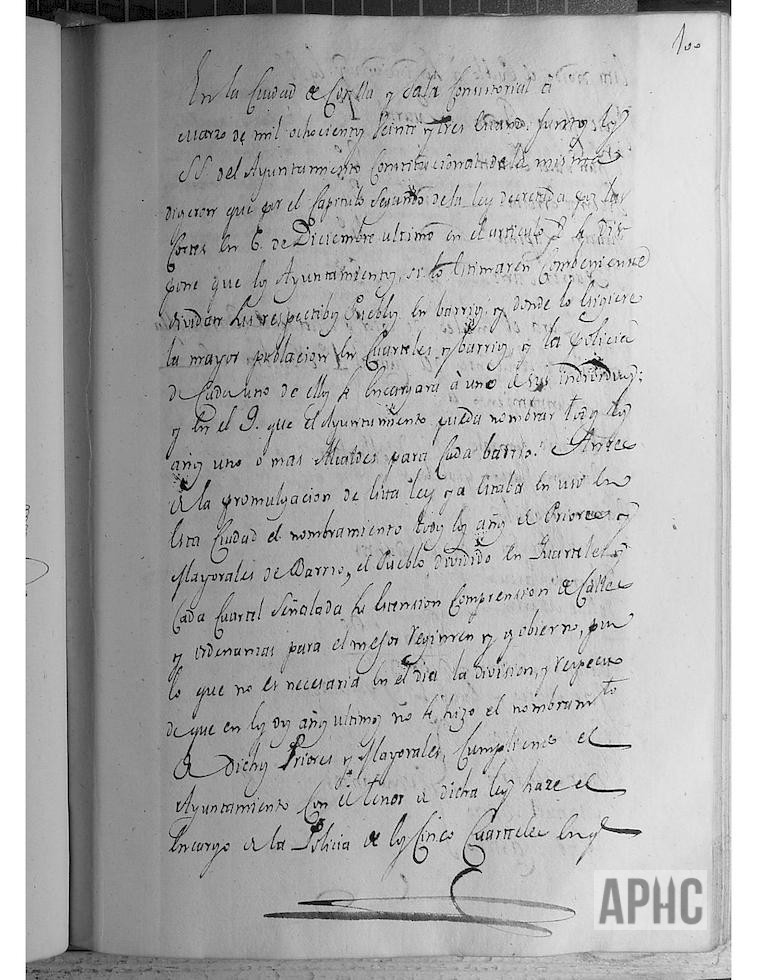 100
En la Ciudad de Corella y Sala Consistorial a
Marzo de mil ochocientos Veinte y tres Estando juntos los
SS. del Ayuntamiento Constitucional de la misma
digeron que por el Capitulo Segundo de la ley decretada por las
Cortes en 6. de Diciembre ultimo en el articulo se dis
pone que los Ayuntamientos, si lo Estimaren Combeniente
dividan sus respectibos Pueblos en barrios, y donde lo Exigiere
la mayor poblacion en Cuarteles, y barrios, y la Policia
de Cada uno de ellos se Encargara à uno de sus individuos;
y En el 9. que el Ayuntamiento pueda nombrar todos los
años uno ò mas Alcaldes para Cada barrio: Antes
de la promulgacion de Esta ley ya Estaba en uso en
Esta Ciudad el nombramiento todos los años de Priores y
Mayorales de Barrio, el Pueblo dividido en Quarteles y
Cada Cuartel Señalada su Estension Comprension de Calles
y ordenanzas para el mejor Regimen y gobierno, por
lo que no es necesaria en el dia la division, y respecto
de que en los dos años ultimos no se hizo el nombramto
de Dichos Priores y Mayorales, Cumpliendo el
Ayuntamiento Con el tenor de dicha ley haze el
Encargo de la Policia de los Cinco Cuarteles en q
APHC